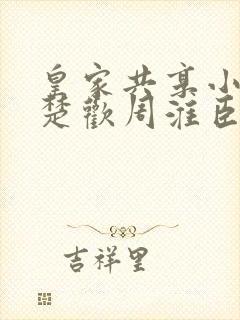 皇家共享小
楚歡周淮臣
吉祥里